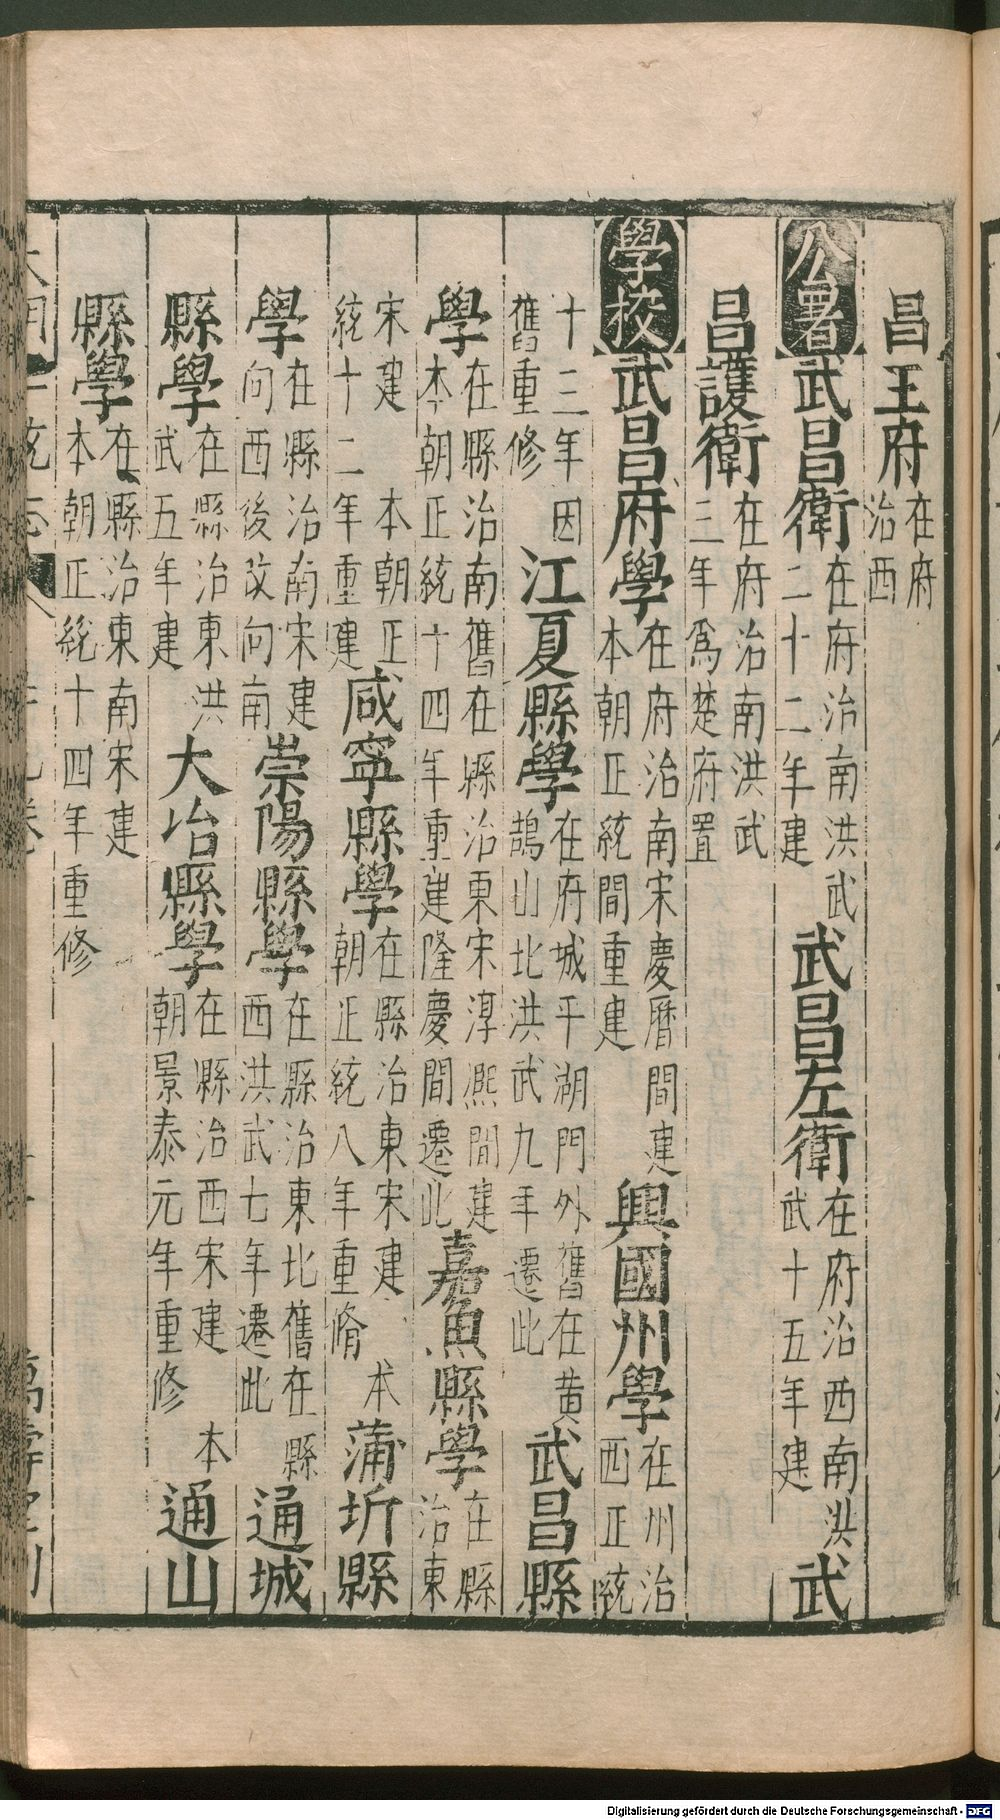 昌王府在府治西
公署武昌衛在府治南洪武二十二年建武昌左衛在府治西南洪武十五年建武
昌護衛在府治南洪武三年爲楚府置
學校武昌府學在府治南宋慶曆間建本朝正統間重建興國州學在州治西正統
十三年因舊重修江夏縣學在府城平湖門外舊在黄鵠山北洪武九年遷此武昌縣
學在縣治南舊在縣治東宋淳熈間建本朝正統十四年重建隆慶間遷此嘉魚縣學在縣治東
宋建本朝正統十二年重建咸寧縣學在縣治東宋建本朝正統八年重脩蒲圻縣
學在縣治南宋建向西後改向南崇陽縣學在縣治東北舊在縣西洪武七年遷此通城
縣學在縣治東洪武五年建大冶縣學在縣治西宋建本朝景泰元年重修通山
縣學在縣治東南宋建本朝正統十四年重修
一統志
萬壽堂刊
Digitalisierung gefördert durch die Deutsche Forschungsgemeinschaft - DFG